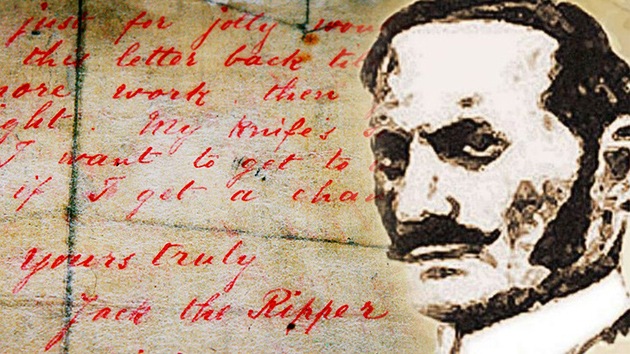 just for jolly wou
this letter back til
more work then
ght. My Knife's
I want to get to
if I get a chan
yours truly
Jack the Ripper